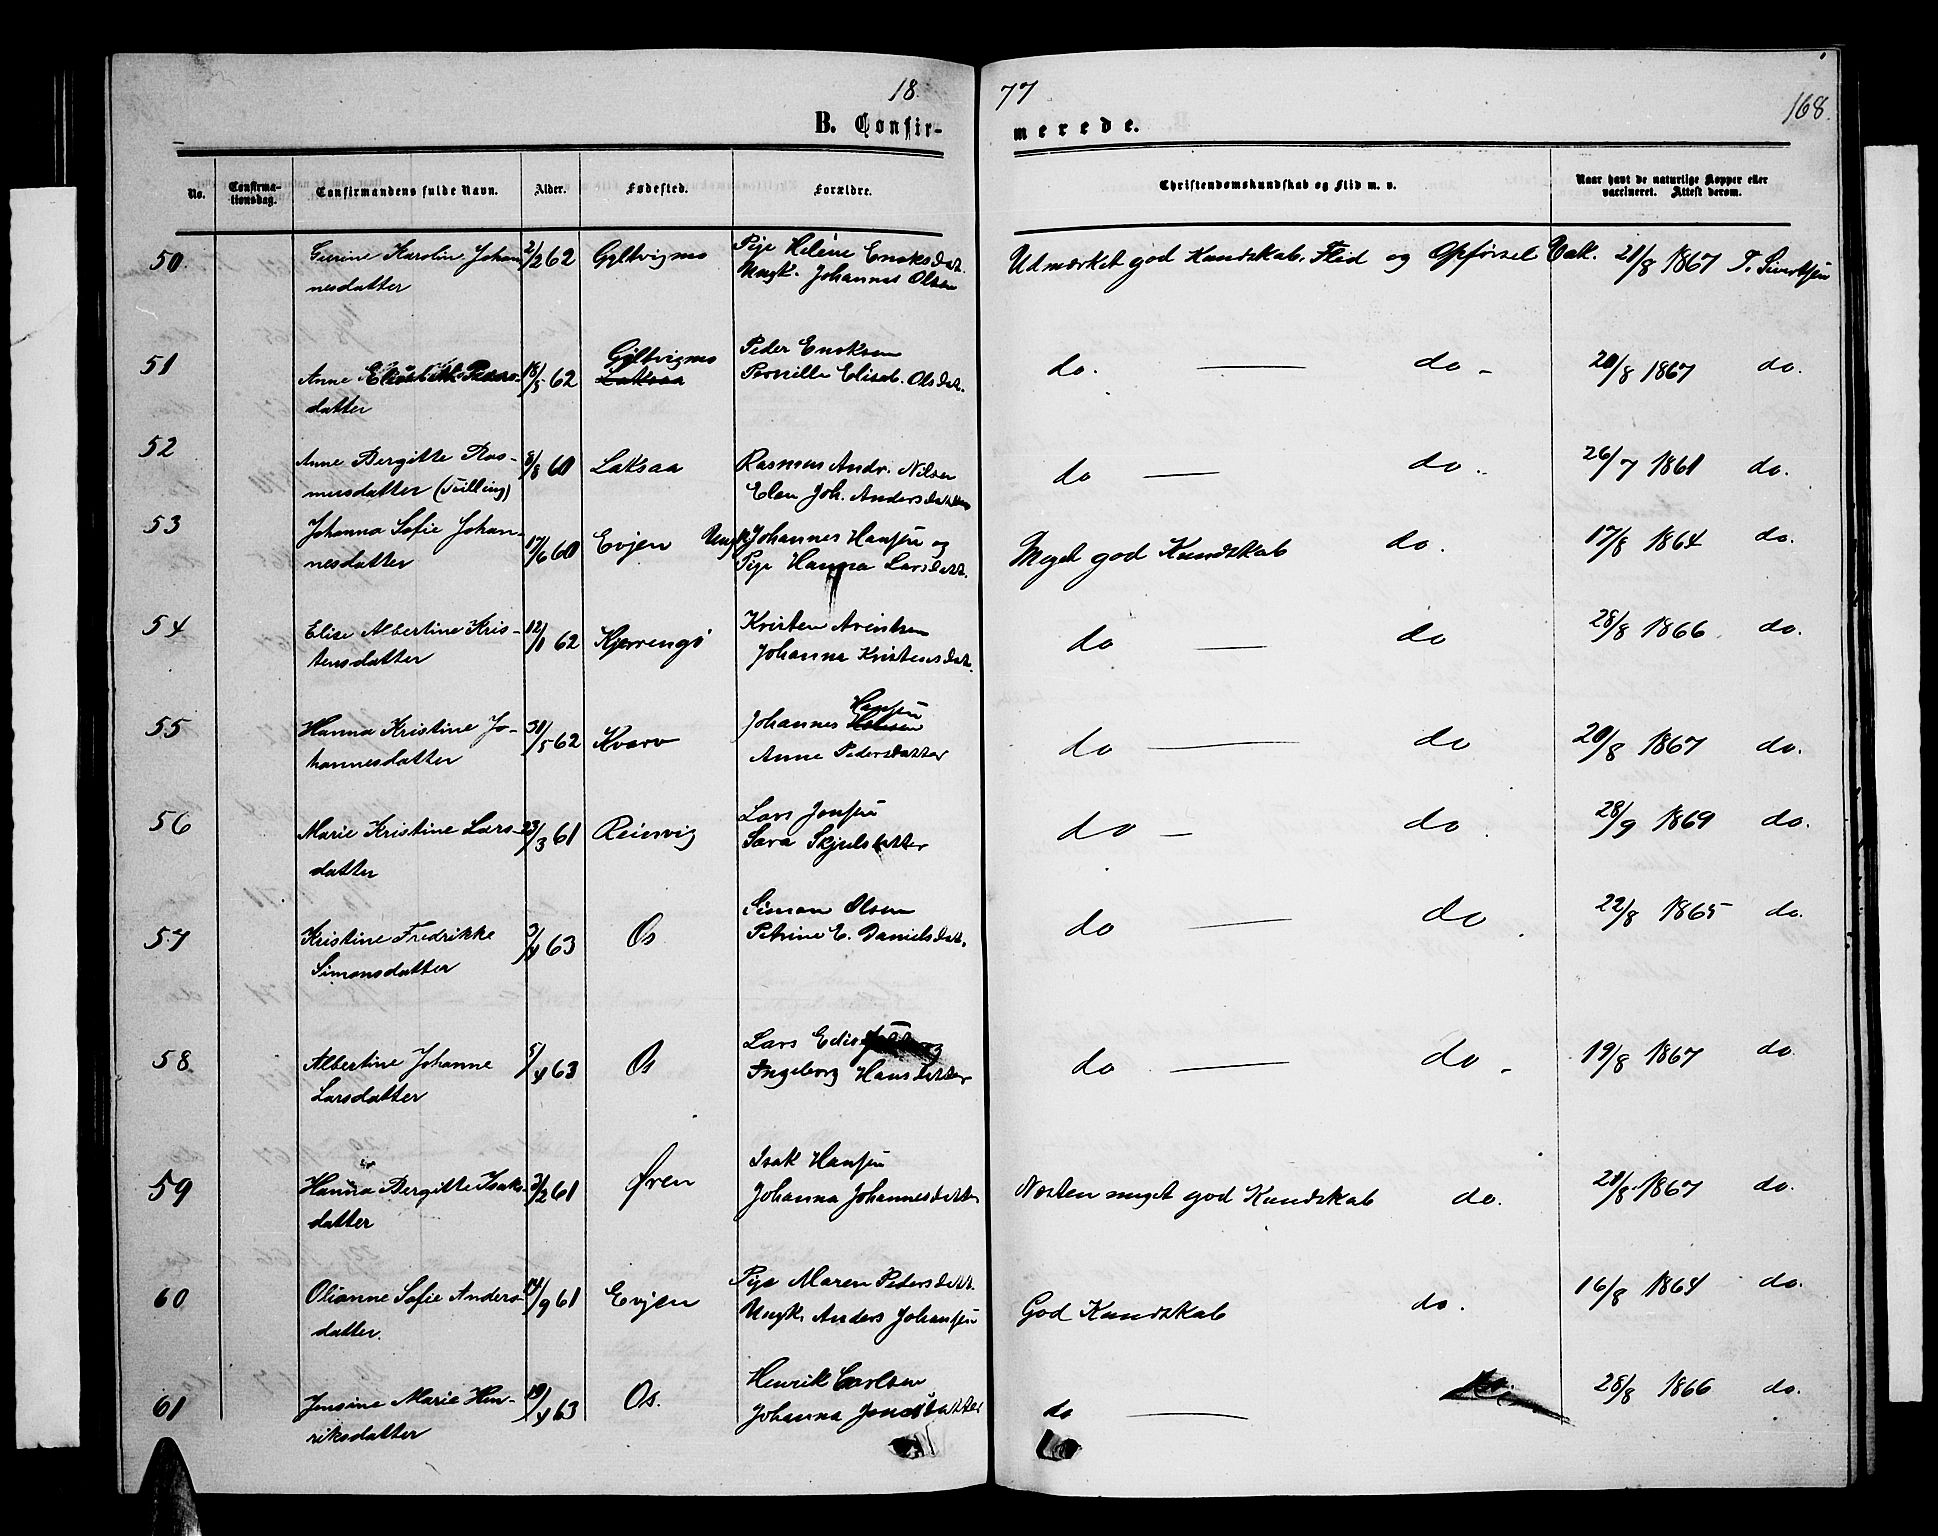 18 77
168.
B. Confir- merede.
No. Confirma-tionsdag. Confirmandens fulde Navn. Alder. Fødested. Forældre. Christendomskundskab og Flid m. v. Naar havt de naturlige Kopper eller vaccineret. Attest derom.
50. Karolin Johan- 2/2 62 Gyltvignes Pige Helene Enoksdat. Udmærket god Kundskab, Flid og Opførsel Vak. 21/8 1867 T. Sivertsen
nesdatter Ungk. Johannes Olsen
51 Anne Elisabeth Peders- 18/5 62 Gyltvignes Peder Enoksen do. do - 20/8 1867 do.
datter Laksaa Pernille Elisab. Olsdat.
52 Anne Bergitte Ras- 8/8 60 Laksaa Rasmus Andr. Nilsen do do. 26/7 1861 do.
musdatter (Tvilling) Elen Joh. Andersdatter
53 Johanna Sofie Johan- 17/6 60 Evjen Ungk. Johannes Hansen og Meget god Kundskab do. 17/8 1864 do.
nesdatter Pige Hanna Larsdatt.
54 Elise Albertine Kris- 12/1 62 Kjerringø Kristen Arentsen do do 28/8 1866 do.
tensdatter Johanna Kristensdat.
55 Hanna Kristine Jo- 31/5 62 Kvarv Johannes Hansen do do 20/8 1867 do.
hannesdatter Anne Pedersdatter
56 Marie Kristine Lars- 23/3 61 Reinsvig Lars Jonsen do - do. 28/9 1869 do.
datter Sara Skjelsdatter
57 Kristine Fredrikke 3/4 63 Os Simon Olsen do do. 22/8 1865 do.
Simonsdatter Petrine E. Danielsdat.
58 Albertine Johanne 5/4 63 Os Lars do do - 19/8 1867 do.
Larsdatter Ingeborg Hansdatter
59 Hanna Bergitte Isaks- 3/2 61 Øren Isak Hansen Næsten meget god Kundskab do. 21/8 1867 do.
datter Johanna Johannesdatter
60 Olianne Sofie Anders- 14/9 61 Evjen Pige Maren Pedersdatt. God Kundskab do. 16/8 1864 do.
datter. Ungk. Anders Johansen
61 Jensine Marie Hen- 19/4 63 Os. Henrik Carlsen do do. 28/8 1866 do.
riksdatter Johanna Jonsdatter